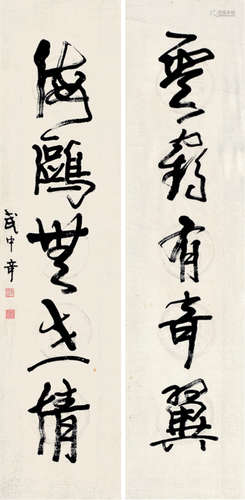 雲鶴有奇翼
海鷗無世情
武中奇